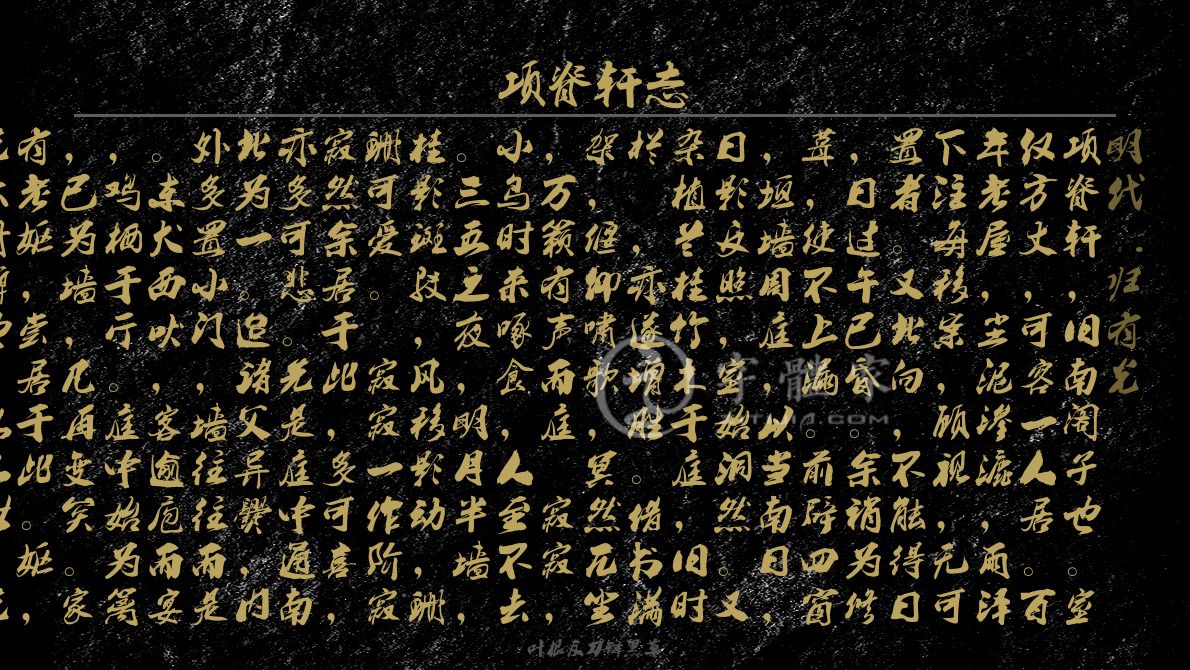 项脊轩志
明代·归有光
项脊轩，旧南阁子也。室
仅方丈，可容一人居。百
年老屋，尘泥渗漉，雨泽
下注每移案，顾视无可
置者。又北向，不能得日
，日过午已昏。余稍为修
葺，使不上漏。前辟四窗
，垣墙周庭，以当南日，
日影反照，室始洞然。又
杂植兰桂竹木于庭，旧时
栏，亦遂增胜。借书满
架，偃仰啸歌，冥然兀坐
，万籁有声而庭寂寂，
小鸟时来啄食，人至不去
。三五之夜，明月半墙，
桂影斑，风移影动，珊
珊可爱。寂寂一作阶寂
寂然余居于此，多可喜，
亦多可悲。先是庭中通南
北为一。迨诸父异爨，内
外多置小门墙往往而是
。东犬西吠，客逾庖而宴
，鸡栖于厅。庭中始为篱
已为墙，凡再变矣。家
有老妪，尝居于此。妪，
字体家